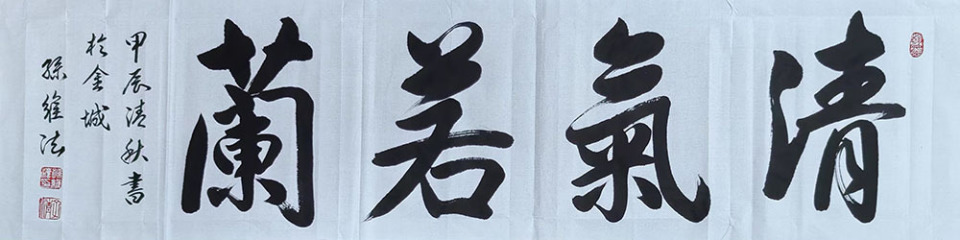 清氣若蘭
甲辰清秋書
於金城
孫維法